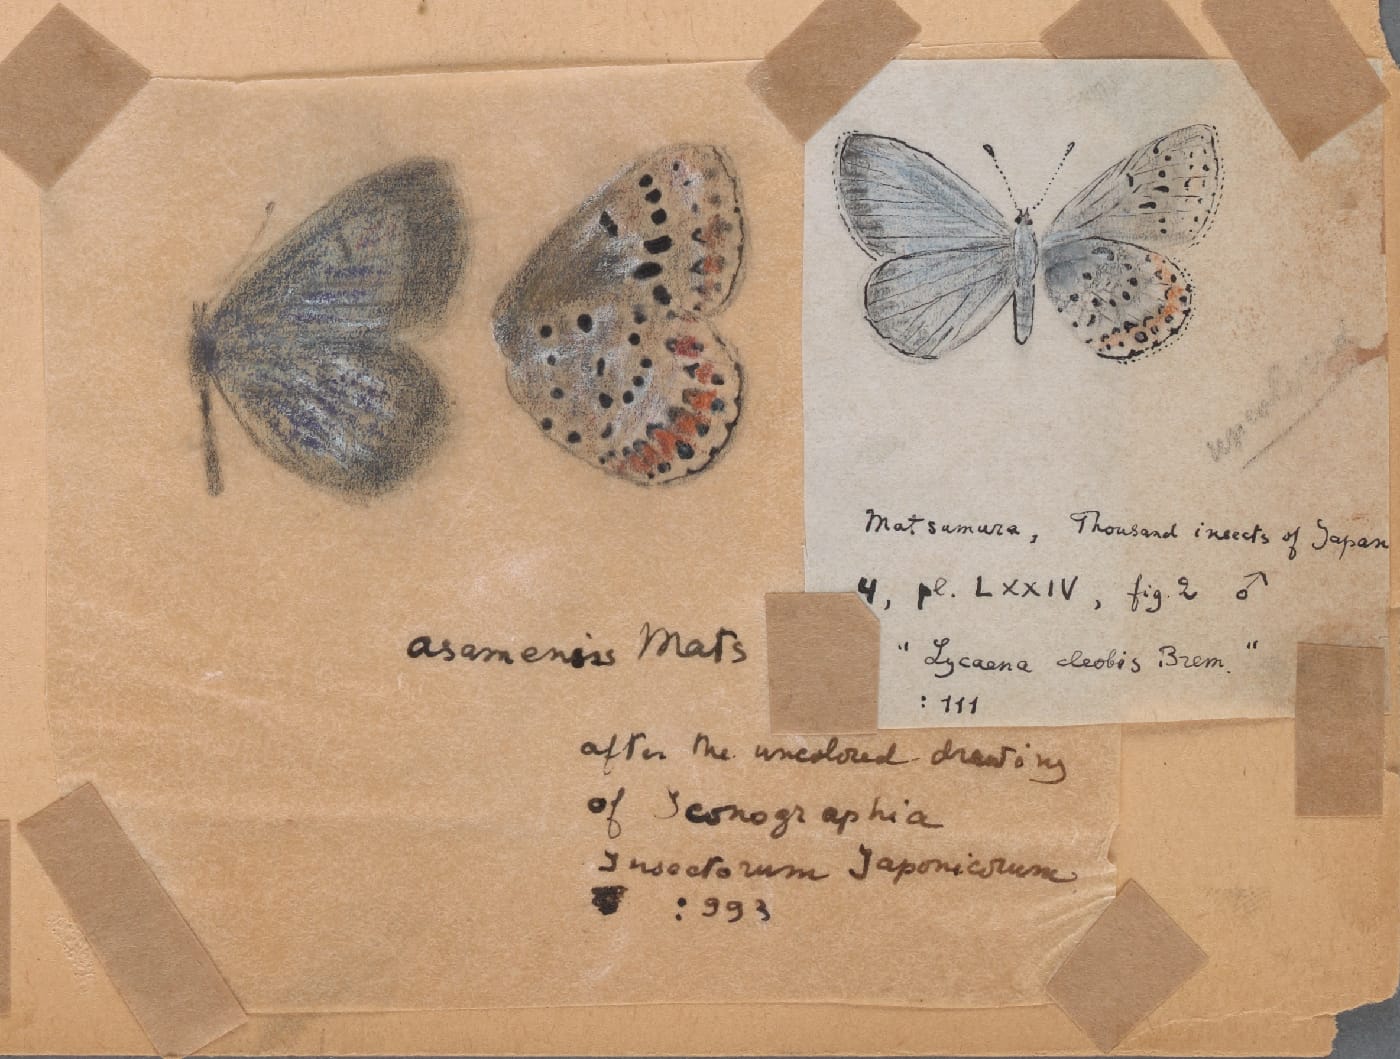 asamensis Mats
after the uncolored drawing
of Iconographia
Insectorum Japonicorum
: 993
Matsumura, Thousand insects of Japan
4, pl. LXXIV, fig. 2 ♂
" Lycaena cleobis Brem. "
: 111